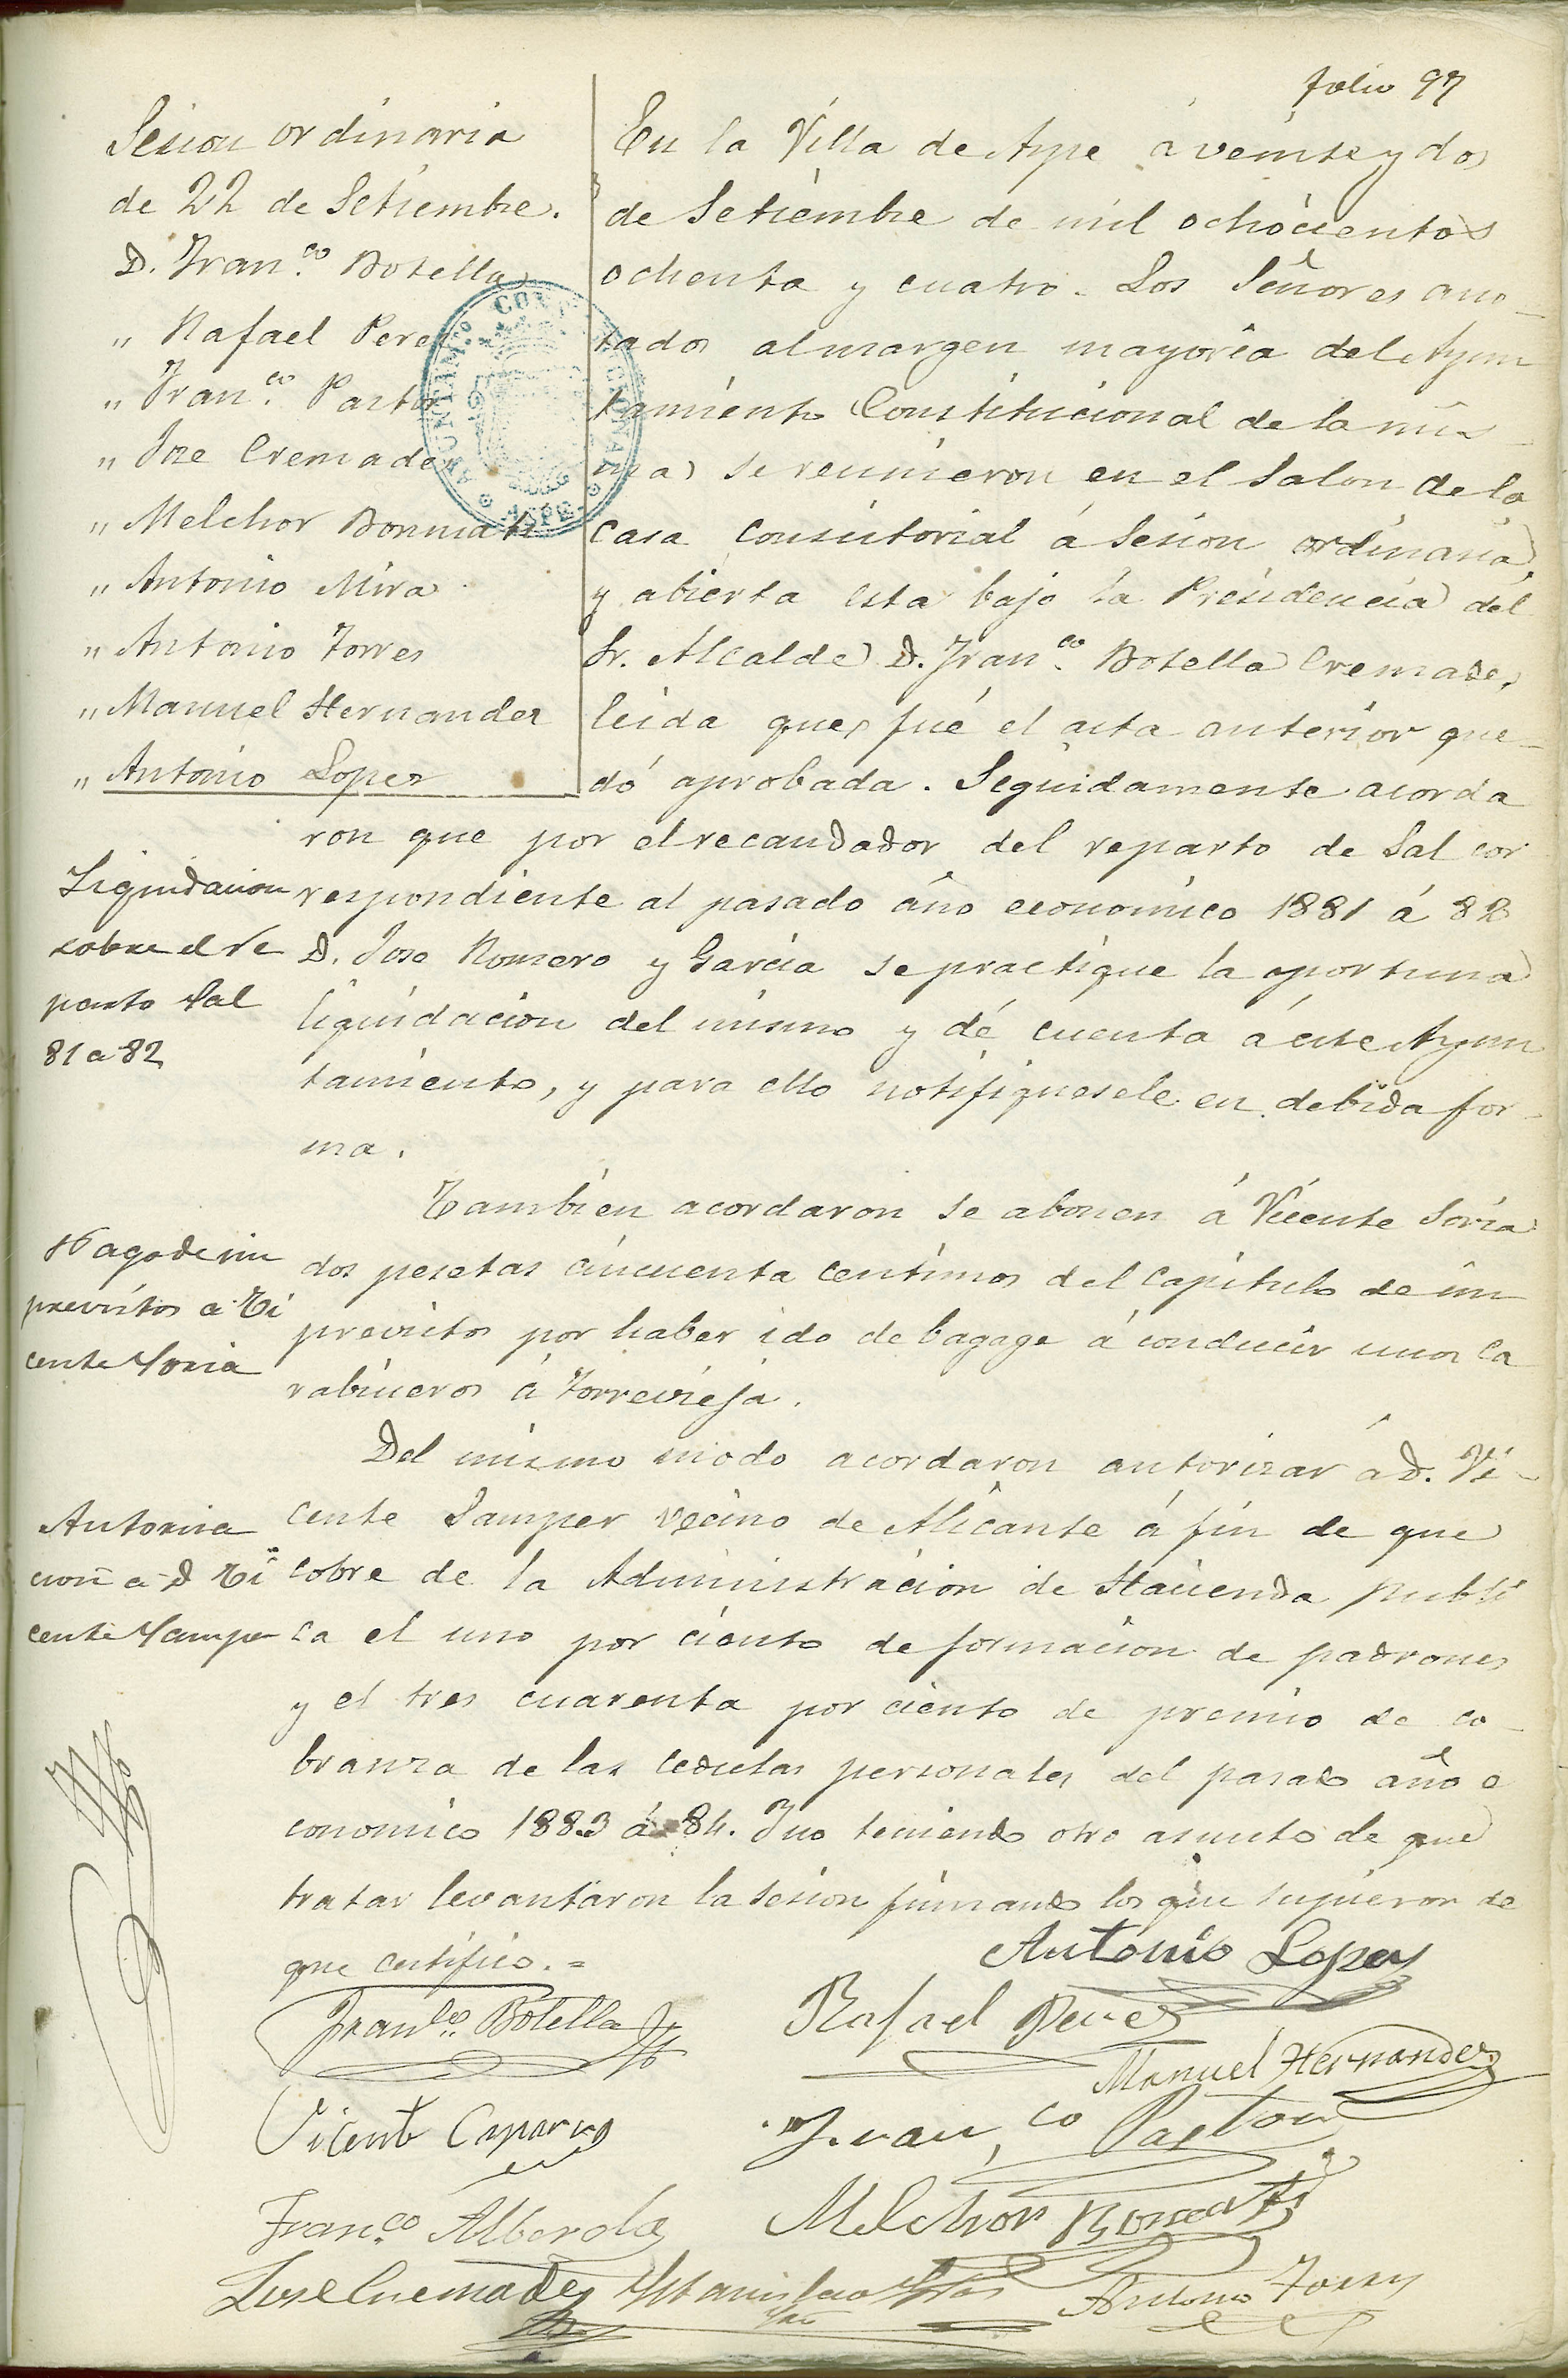 folio 97
Sesion ordinaria
de 22 de Setiembre.
D. Fran.co Botella
" Rafael Perez
" Fran.co Pastor
" Jose Cremades
" Melchor Bonmati
" Antonio Mira
" Antonio Torres
" Manuel Hernandez
" Antonio Lopez
AYUNTAM.to CONSTITUCIONAL
ASPE
En la Villa de Aspe á veinte y dos
de Setiembre de mil ochocientos
ochenta y cuatro. Los Señores ano-
tados al margen mayoria del Ayun
tamiento Constitucional de la mis-
ma, se reunieron en el Salon de la
Casa Consistorial á Sesion ordinaria,
y abierta esta bajo la Presidencia del
Sr. Alcalde D. Fran.co Botella Cremades,
leida que fué el acta anterior que-
dó aprobada. Seguidamente acorda
ron que por el recaudador del reparto de Sal cor
respondiente al pasado año economico 1881 á 82
D. Jose Romero y Garcia se practique la oportuna
liquidacion del mismo y dé cuenta á este Ayun
tamiento, y para ello notifiquesele en debida for-
ma.
Liquidacion
sobre el re
parto Sal
81 a 82
Tambien acordaron se abonen á Vicente Soria
dos pesetas cincuenta centimos del Capitulo de im
previstos por haber ido de bagage á conducir unos ca
rabineros á Torrevieja.
Pago de im
previstos a Vi
cente Soria
Del mismo modo acordaron autorizar á D. Vi-
cente Samper vecino de Alicante á fin de que
cobre de la Administracion de Hacienda publi
ca el uno por ciento de formacion de padrones
y el tres cuarenta por ciento de premio de co-
branza de las cedulas personales del pasado año e
conomico 1883 á 84. Y no teniendo otro asunto de que
tratar levantaron la Sesion firmando los que supieron de
que certifico.=
Autoriza
cion a D Vi
cente Samper
Antonio Lopez
Fran.co Botella
Rafael Perez
Manuel Hernandez
Vicente Caparros
Fran.co Pastor
Franco Alberola
Melchor Bonmati
Jose Cremades
Antonio Torres